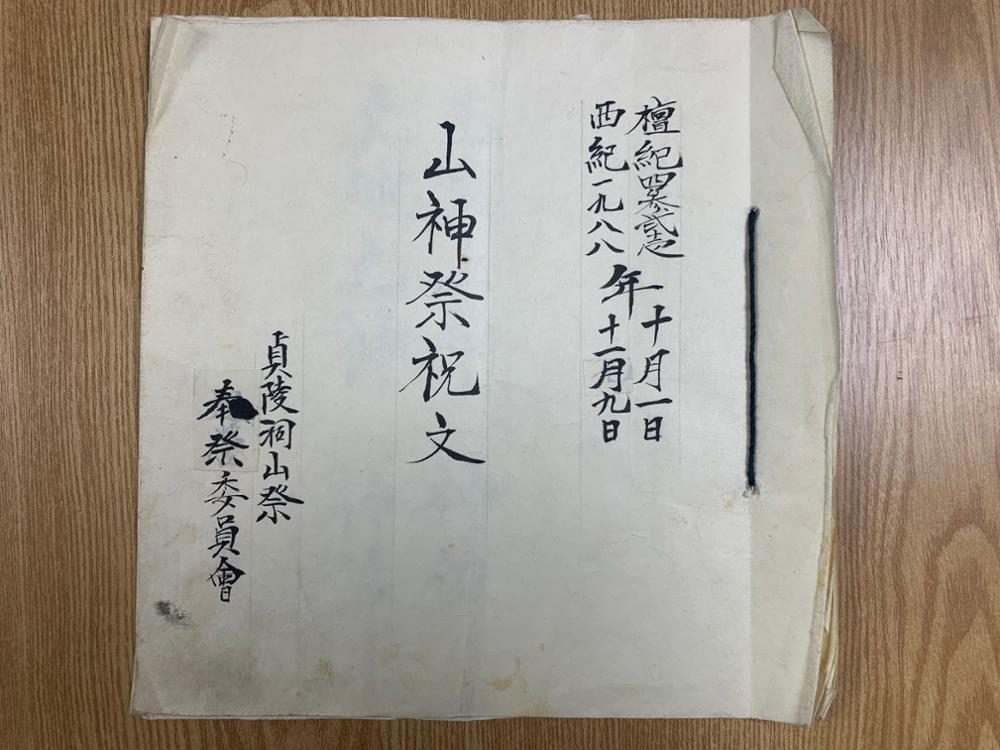 檀紀四
西紀一九八八
年
十月一日
十一月九日
山神祭祝文
貞陵祠山祭
奉祭委員會